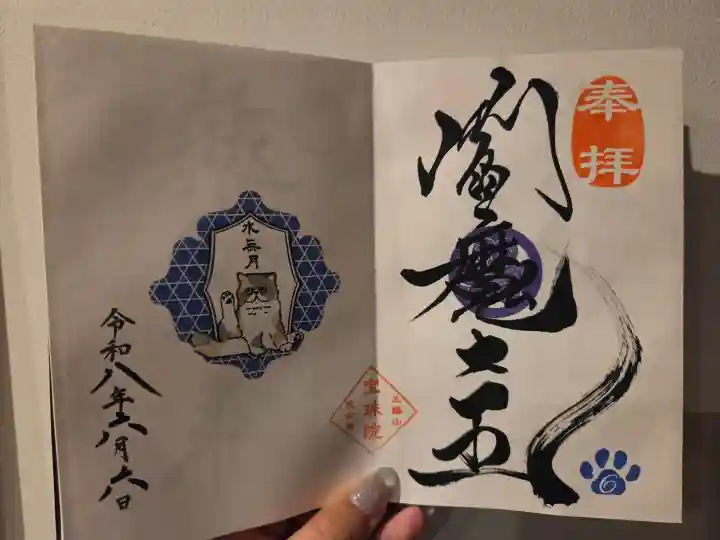 奉拝
閻魔大王
水無月
三縁山
宝珠院
令和八年六月六日
6